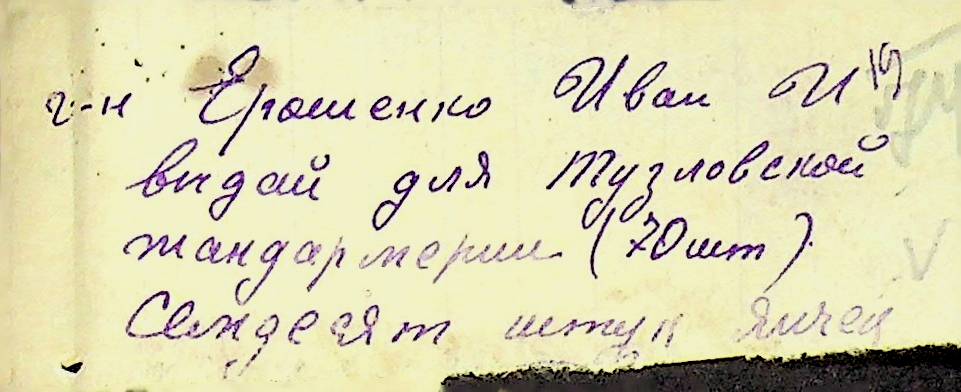 г-н Ерошенко Иван И
выдай для Тузловской
жандармерии (70 шт).
Семдесят штук яичек